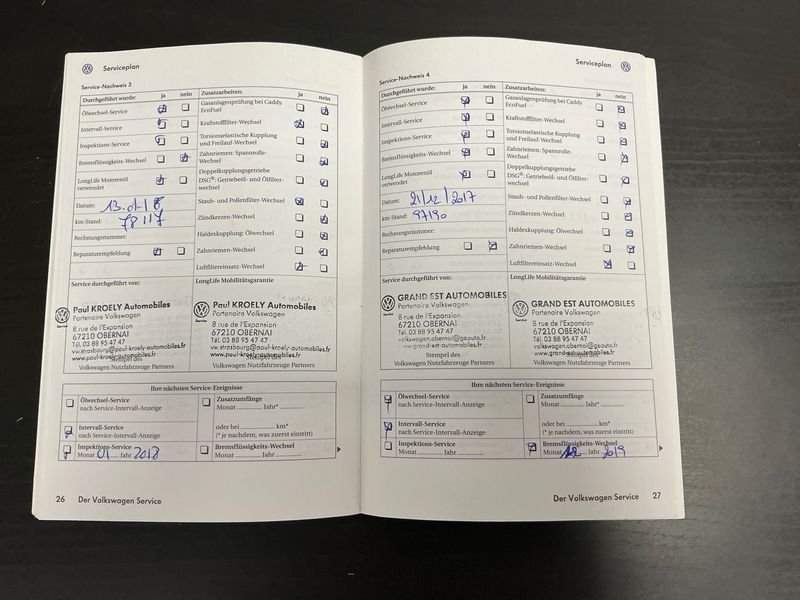 Serviceplan
Service-Nachweis 3
Durchgeführt wurde: ja nein
Ölwechsel-Service
Intervall-Service
Inspektions-Service
Bremsflüssigkeits-Wechsel
LongLife Motorenöl
verwendet
Datum:
km-Stand: 78117
Rechnungsnummer:
Reparaturempfehlung
Zusatzarbeiten: ja nein
Gasanlagenprüfung bei Caddy
EcoFuel
Kraftstofffilter-Wechsel
Torsionselastische Kupplung
und Freilauf-Wechsel
Zahnriemen: Spannrolle-
Wechsel
Doppelkupplungsgetriebe
DSG®: Getriebeöl- und Ölfilter-
wechsel
Staub- und Pollenfilter-Wechsel
Zündkerzen-Wechsel
Haldexkupplung: Ölwechsel
Zahnriemen-Wechsel
Luftfiltereinsatz-Wechsel
Service durchgeführt von:
LongLife Mobilitätsgarantie
Paul KROELY Automobiles
Partenaire Volkswagen
8 rue de l'Expansion
67210 OBERNAI
Tél. 03 88 95 47 47
vw.strasbourg@paul-kroely-automobiles.fr
www.paul-kroely-automobiles.fr
Service
Volkswagen Nutzfahrzeuge Partners
Paul KROELY Automobiles
Partenaire Volkswagen
8 rue de l'Expansion
67210 OBERNAI
Tél. 03 88 95 47 47
vw.strasbourg@paul-kroely-automobiles.fr
www.paul-kroely-automobiles.fr
Service
Stempel des
Volkswagen Nutzfahrzeuge Partners
Ihre nächsten Service-Ereignisse
Ölwechsel-Service
nach Service-Intervall-Anzeige
Intervall-Service
nach Service-Intervall-Anzeige
Inspektions-Service
Monat 01 Jahr 2018
Zusatzumfänge
Monat ............ Jahr*
oder bei ............ km*
(* je nachdem, was zuerst eintritt)
Bremsflüssigkeits-Wechsel
Monat ............ Jahr ............
26 Der Volkswagen Service
Serviceplan
Service-Nachweis 4
Durchgeführt wurde: ja nein
Ölwechsel-Service
Intervall-Service
Inspektions-Service
Bremsflüssigkeits-Wechsel
LongLife Motorenöl
verwendet
Datum: 21/12/2017
km-Stand: 97190
Rechnungsnummer:
Reparaturempfehlung
Zusatzarbeiten: ja nein
Gasanlagenprüfung bei Caddy
EcoFuel
Kraftstofffilter-Wechsel
Torsionselastische Kupplung
und Freilauf-Wechsel
Zahnriemen: Spannrolle-
Wechsel
Doppelkupplungsgetriebe
DSG®: Getriebeöl- und Ölfilter-
wechsel
Staub- und Pollenfilter-Wechsel
Zündkerzen-Wechsel
Haldexkupplung: Ölwechsel
Zahnriemen-Wechsel
Luftfiltereinsatz-Wechsel
Service durchgeführt von:
LongLife Mobilitätsgarantie
GRAND EST AUTOMOBILES
Partenaire Volkswagen
8 rue de l'Expansion
67210 OBERNAI
Tél. 03 88 95 47 47
volkswagen.obernai@geauto.fr
www.grand-est-automobiles.fr
Service
Stempel des
Volkswagen Nutzfahrzeuge Partners
GRAND EST AUTOMOBILES
Partenaire Volkswagen
8 rue de l'Expansion
67210 OBERNAI
Tél. 03 88 95 47 47
volkswagen.obernai@geauto.fr
www.grand-est-automobiles.fr
Service
Stempel des
Volkswagen Nutzfahrzeuge Partners
Ihre nächsten Service-Ereignisse
Ölwechsel-Service
nach Service-Intervall-Anzeige
Intervall-Service
nach Service-Intervall-Anzeige
Inspektions-Service
Monat ............ Jahr ............
Zusatzumfänge
Monat ............ Jahr*
oder bei ............ km*
(* je nachdem, was zuerst eintritt)
Bremsflüssigkeits-Wechsel
Monat 12 Jahr 2019
Der Volkswagen Service 27